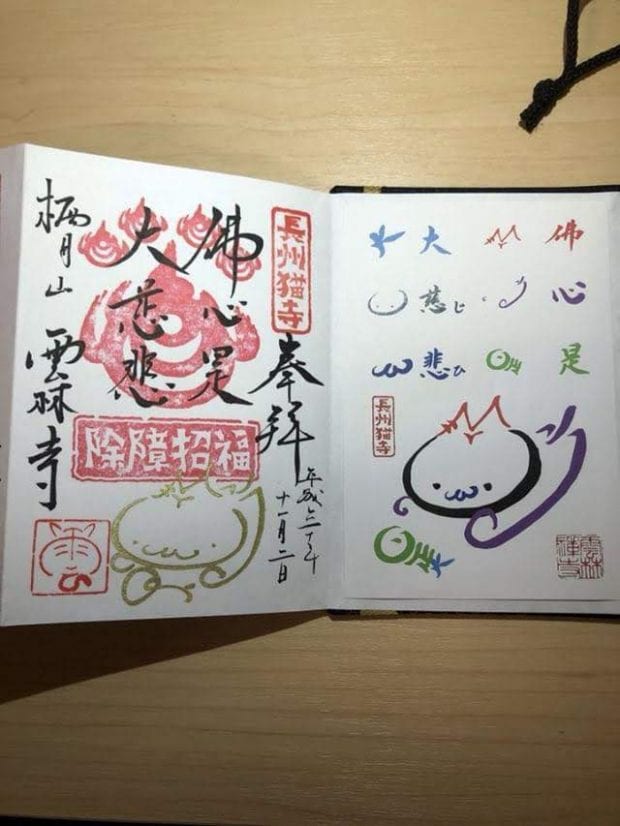 長州猫寺
奉拝
平成三十年
十一月二日
佛心是
大慈悲
除障招福
栖月山
雲林寺
佛心是
大慈じ悲ひ
長州猫寺
雲林
禅寺